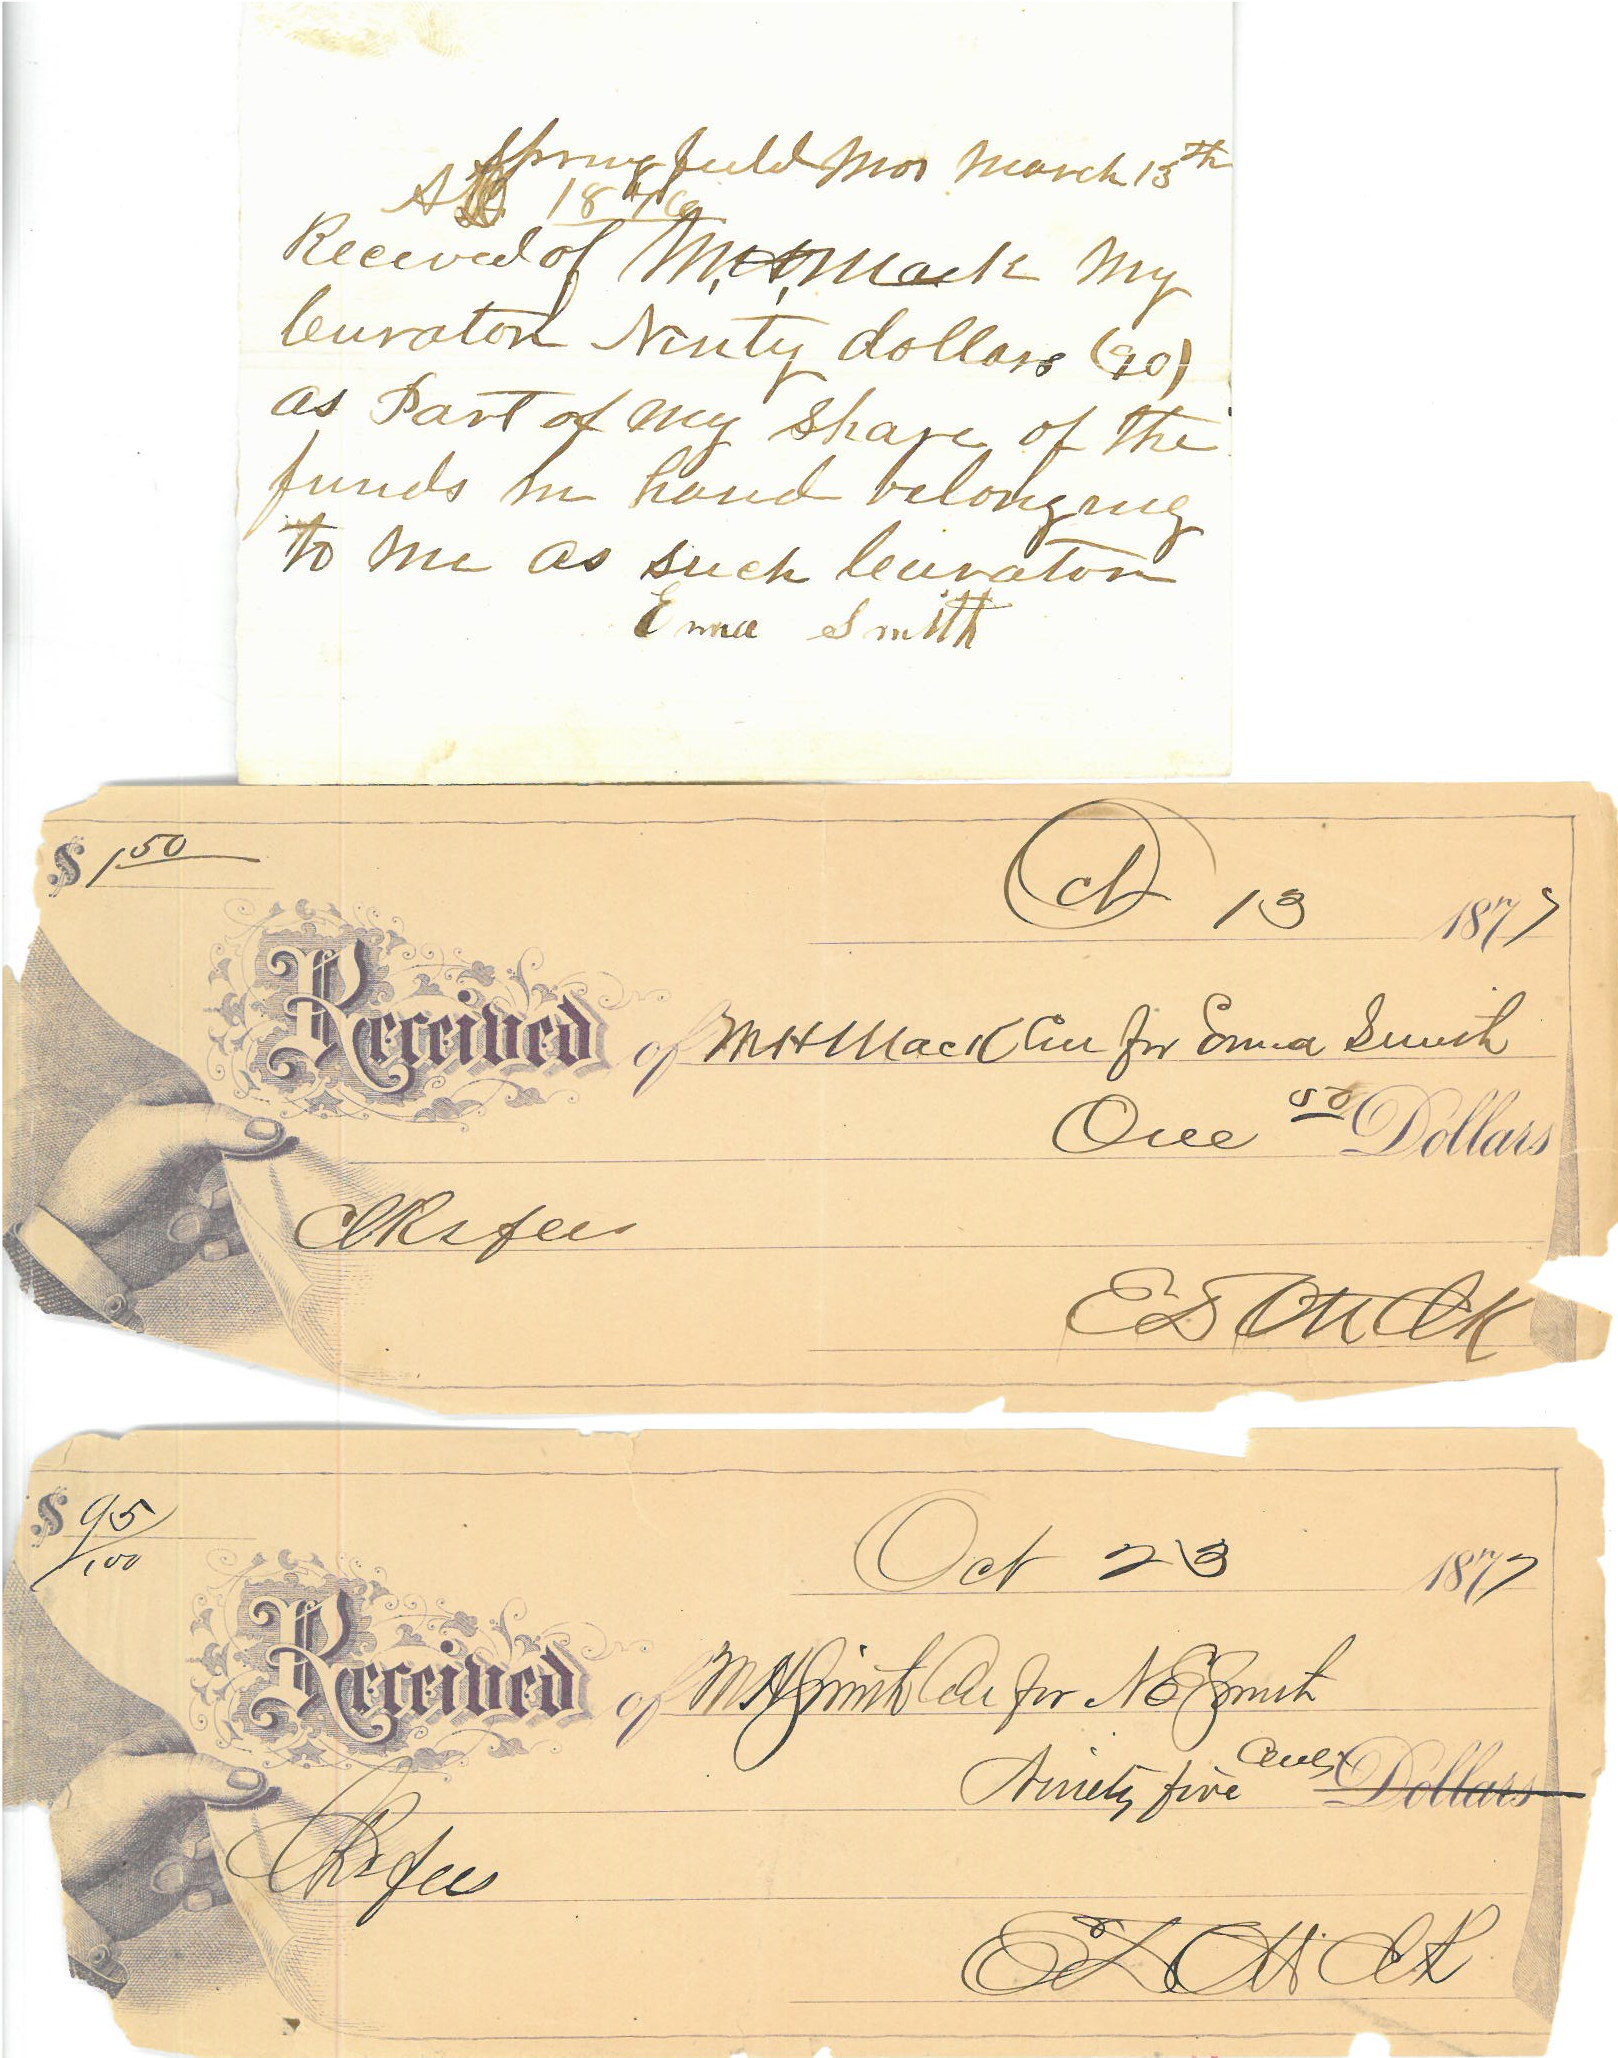 Springfield Mo March 13th
AD. 1876
Received of M. H. Mack My
Curator Ninty dollars (90)
as Part of My Share of the
funds in hand belonging
to Me as such Curator
Emma Smith
$ 1 50
Oct 13 1877
Received of M H Mack Cur for Emma Smith
One 50 Dollars
Clks fees
E D Ott Clk
$ 95/100
Oct 23 1877
Received of M H Smith Cur for N E Smith
Ninety five Cents Dollars
Clks fees
E D Ott Clk